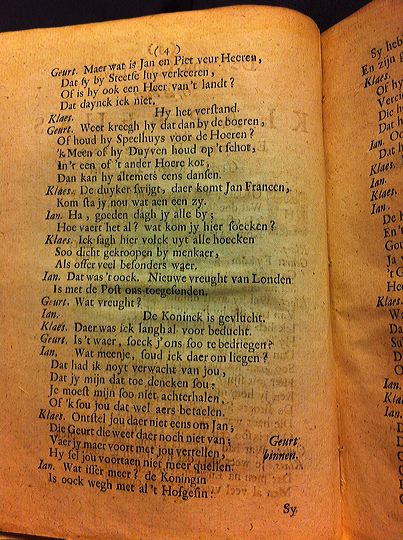 (4)
Geurt. Maer wat is Jan en Piet veur Heeren,
Dat sy by Steetse luy verkeeren,
Of is hy ook een Heer van't landt?
Dat daynck ick niet,
Klaes. Hy het verstand.
Geurt. Weet kreegh hy dat dan by de boeren,
Of houd hy Speelhuys voor de Hoeren?
'k Meen of hy Duyven houd op 't schot,
In't een of 't ander Hoere kot,
Dan kan hy altemets eens dansen.
Klaes. De duyker swijgt, daer komt Jan Francen,
Kom sta jy nou wat aen een zy.
Jan. Ha, goeden dagh jy alle by;
Hoe vaert het al? wat kom jy hier soecken?
Klaes. Ick sagh hier volck uyt alle hoecken
Soo dicht gekroopen by menkaer,
Als offer veel besonders waer.
Jan. Dat was't oock. Nieuwe vreught van Londen
Is met de Post ons toegesonden.
Geurt. Wat vreught?
Jan. De Koninck is gevlucht.
Klaes. Daer was ick langh al voor beducht.
Geurt. Is 't waer, soeck j'ons soo te bedriegen?
Jan. Wat meenje, soud ick daer om liegen?
Dat had ik noyt verwacht van jou,
Dat jy mijn dat toe dencken sou;
Je moest mijn soo niet achterhalen,
Of 'k sou jou dat wel aers betaelen.
Klaes. Ontstel jou daer niet eens om Jan;
Die Geurt die weet daer noch niet van;
Vaer jy maer voort met jou vertellen,
Hy sel jou voortaen niet meer quellen.
Geurt
binnen.
Jan. Wat isser meer? de Koningin
Is oock wegh met al 't Hofgesin:
Sy